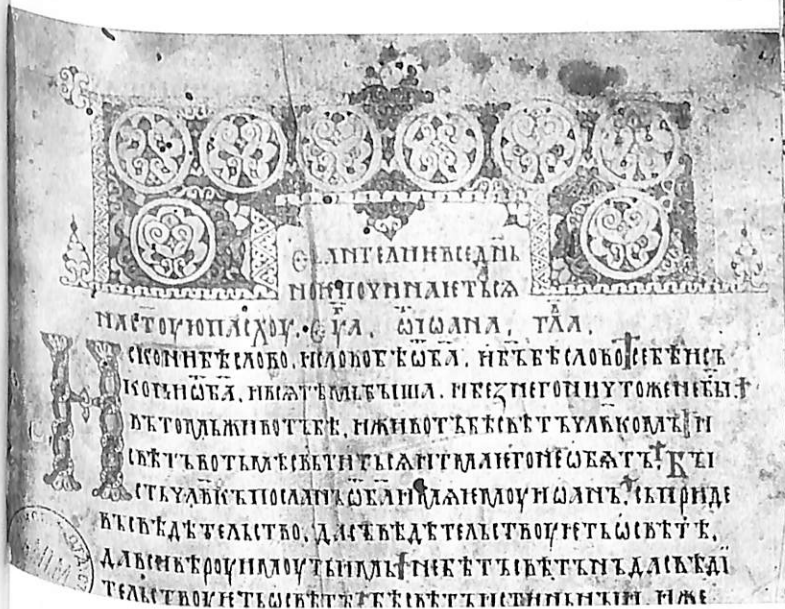 ЄѴАНГЕЛИИ ВСЕДН҃Ь
НОИ ПОЧИНАІЕТЬСѦ
НАСТ҃ОУЮПАСХОУ. ЄУ҃А. Ѿ ІѠАНА. ГЛ҃А.
ИСКОНИБѢСЛОВО. ИСЛОВОБѢѾБ҃А. ИБ҃ЪБѢСЛОВО СЕБѢИСЪ
КОНИѾБ҃А. ИВСѦТѢМЬБЫША. ИБЕЗНЕГОНИЧТОЖЕНЕБЫ.
ВЪТОМЬЖИВОТЪБѢ. ИЖИВОТЪБѢСВѢТЪЧЛ҃ВКОМЪ И
СВѢТЪВОТЬМѢСВЬТИТЬСѦ ИТМАІЕГОНЕѠБѦТЪ. БЪІ
СТЬЧЛ҃ВКЪПОСЛАНЪѾБ҃А ИМѦІЕМОУИѠАНЪ. СЬПРИДЕ
ВЪСВѢДѢТЕЛЬСТВО. ДАСВѢДѢТЕЛЬСТВОУІЕТЬѠСВѢТѢ.
ДАВСИВѢРОУИМОУТЬИМЬ НЕБѢТЪСВѢТЪНЪДАСВѢДІ
ТЕЛЬСТВОУІЕТЬѠСВѢТѢ БѢСВѢТЪИСТИНЬНЪІИ ИЖЕ